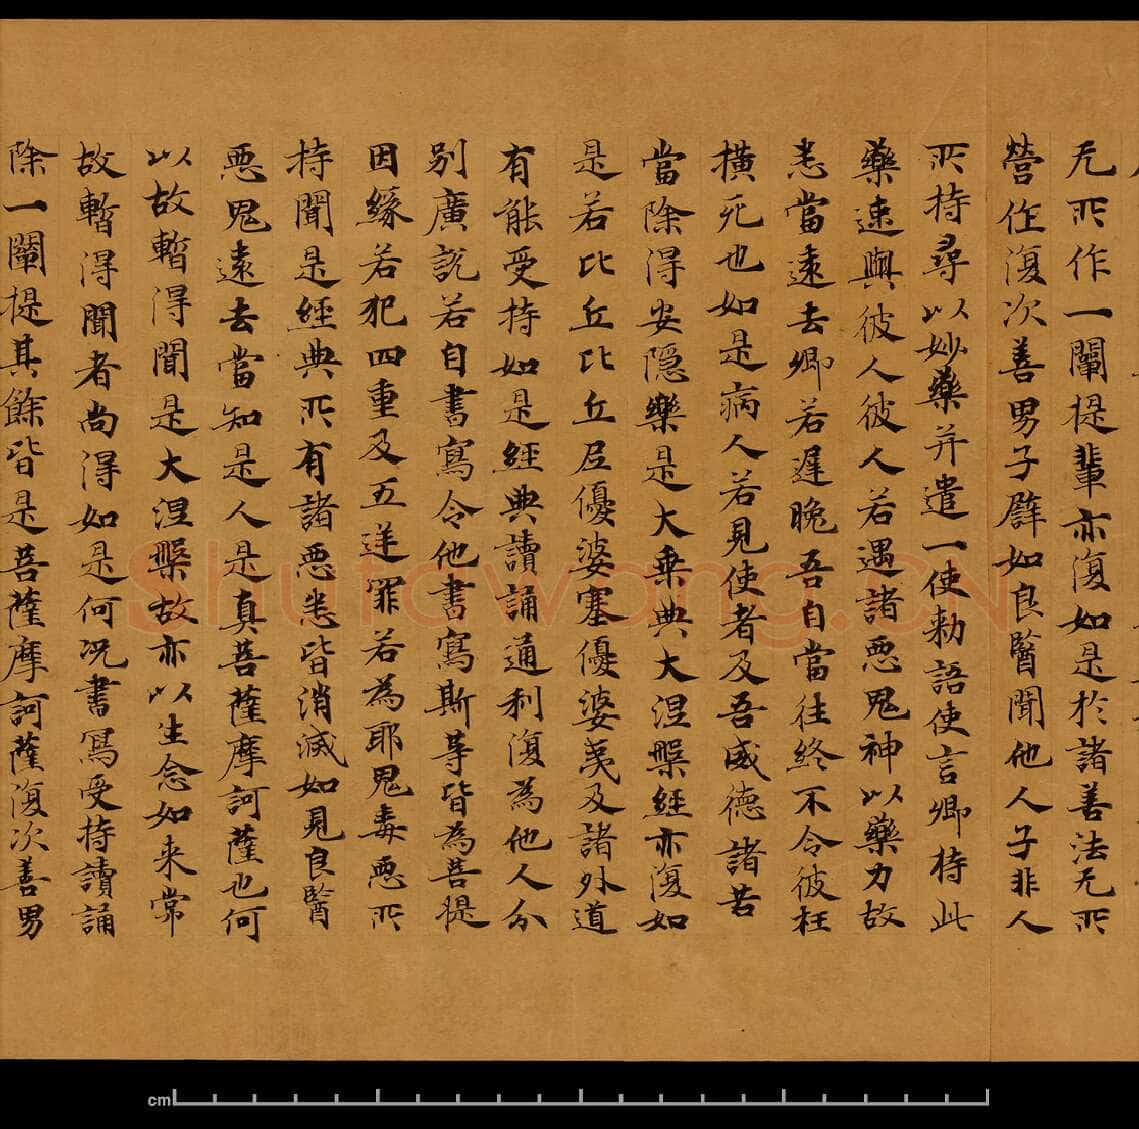 无所作一闡提輩亦復如是於諸善法无所
營作復次善男子譬如良醫聞他人子非人
所持尋以妙藥并遣一使勑語使言卿持此
藥速與彼人彼人若遇諸惡鬼神以藥力故
悉當遠去卿若遲晚吾自當往終不令彼枉
橫死也如是病人若見使者及吾威德諸苦
當除得安隱樂是大乗典大涅槃經亦復如
是若比丘比丘尼優婆塞優婆夷及諸外道
有能受持如是經典讀誦通利復為他人分
別廣說若自書寫令他書寫斯等皆為菩提
因緣若犯四重及五逆罪若為耶鬼毒惡所
持聞是經典所有諸惡悉皆消滅如見良醫
惡鬼遠去當知是人是真菩薩摩訶薩也何
以故暫得聞是大涅槃故亦以生念如来常
故暫得聞者尚得如是何况書寫受持讀誦
除一闡提其餘皆是菩薩摩訶薩復次善男
Shufawang.CN
cm